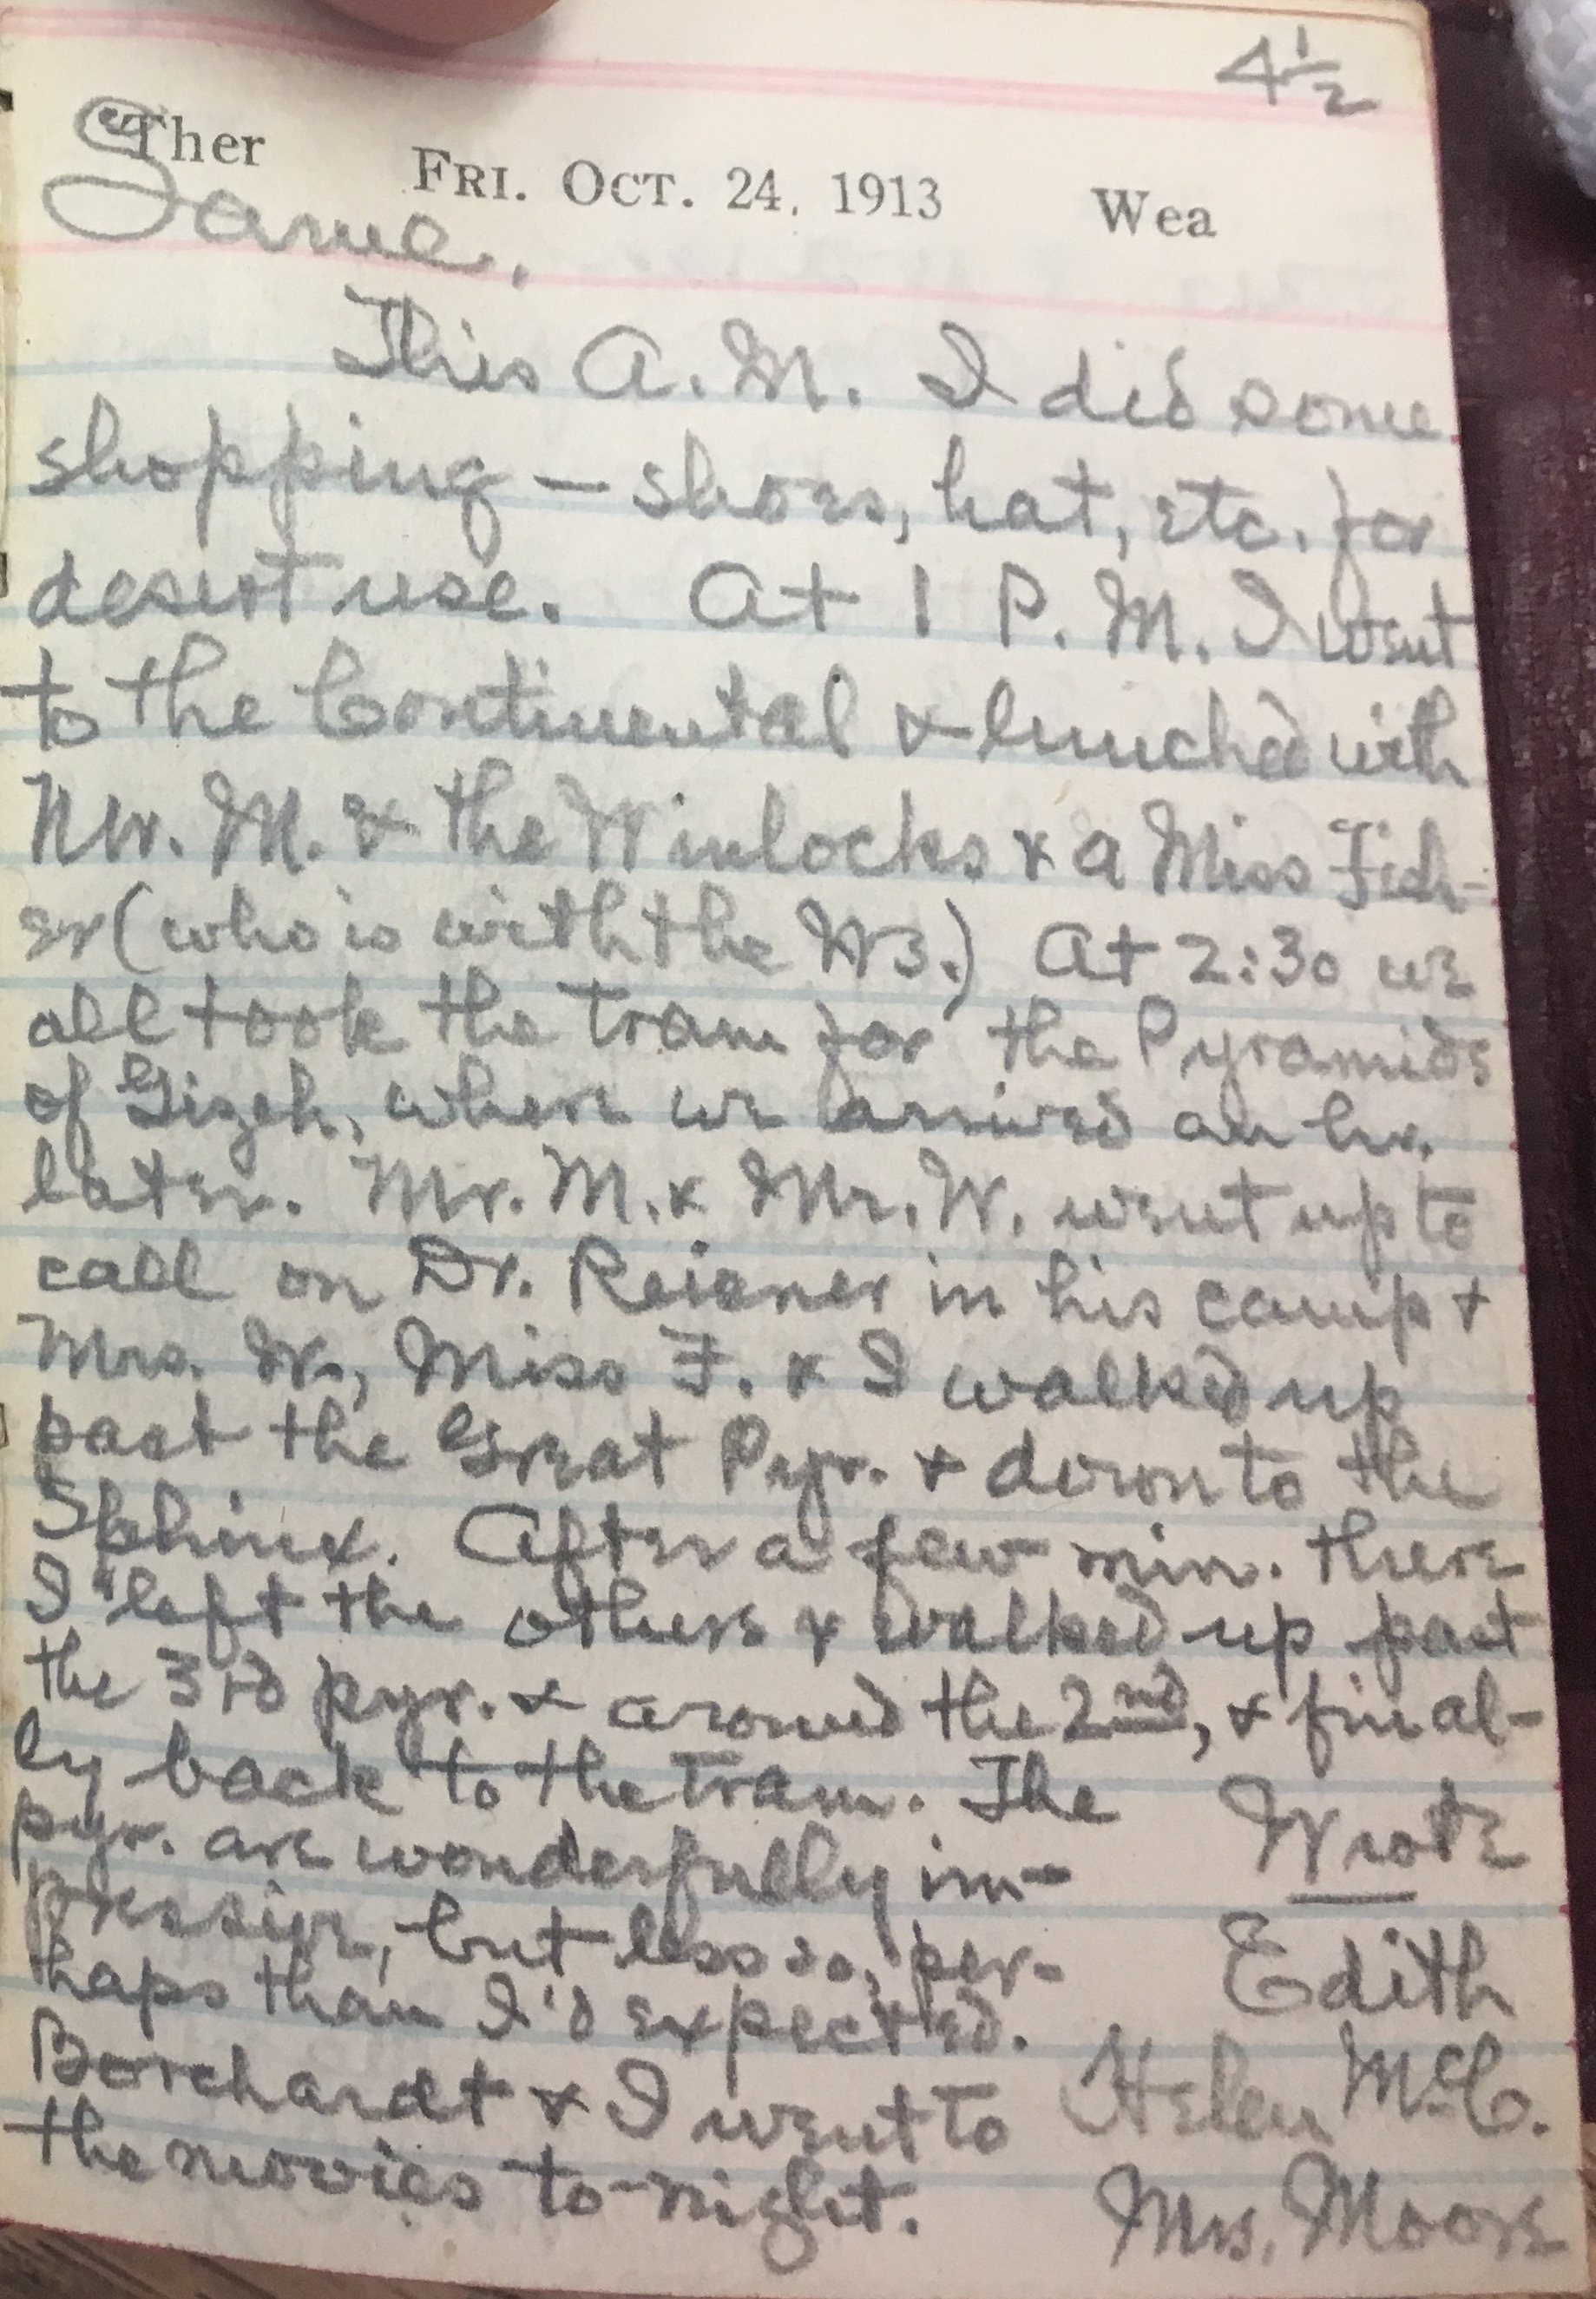 4½
Ther FRI. OCT. 24, 1913 Wea
Same.
This A.M. I did some
shopping — shoes, hat, etc. for
desert use. At 1 P.M. I went
to the Continental & lunched with
Mr. M. & the Winlocks & a Miss Fish-
er (who is with the Ws.) At 2:30 we
all took the tram for the Pyramids
of Gizeh, where we arrived an hr.
later. Mr. M. & Mr. W. went up to
call on Dr. Reisner in his camp &
Mrs. W., Miss F. & I walked up
past the Great Pyr. & down to the
Sphinx. After a few min. there
I left the others & walked up past
the 3rd pyr. & around the 2nd, & final-
ly back to the tram. The
pyr. are wonderfully im-
pressive, but less so, per-
haps than I'd expected.
Borchardt & I went to
the movies to-night.
Wrote
Edith
Helen McC.
Mrs. Moore